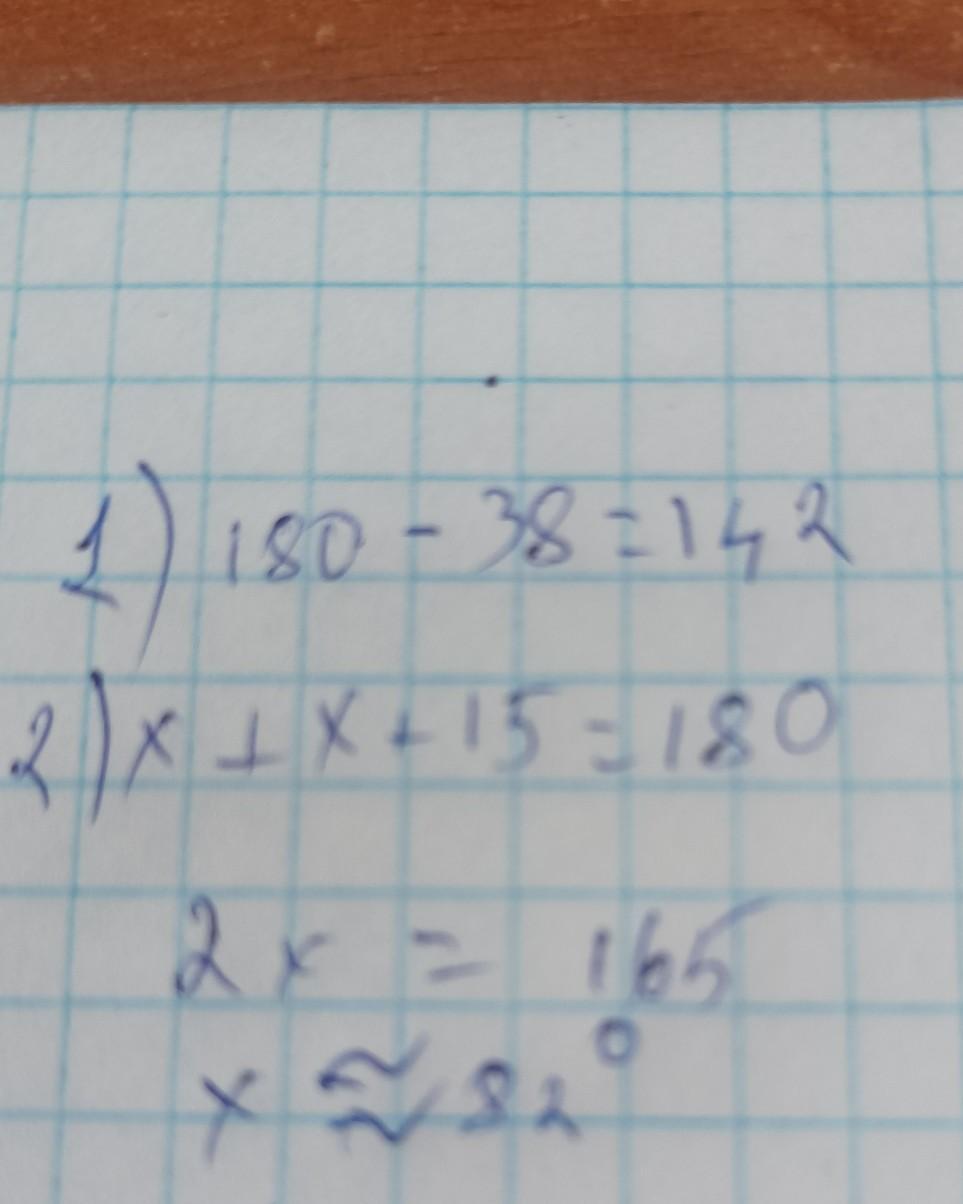 1) 180 - 38 = 142
2) x + x + 15 = 180
2x = 165
x ≈ 82°